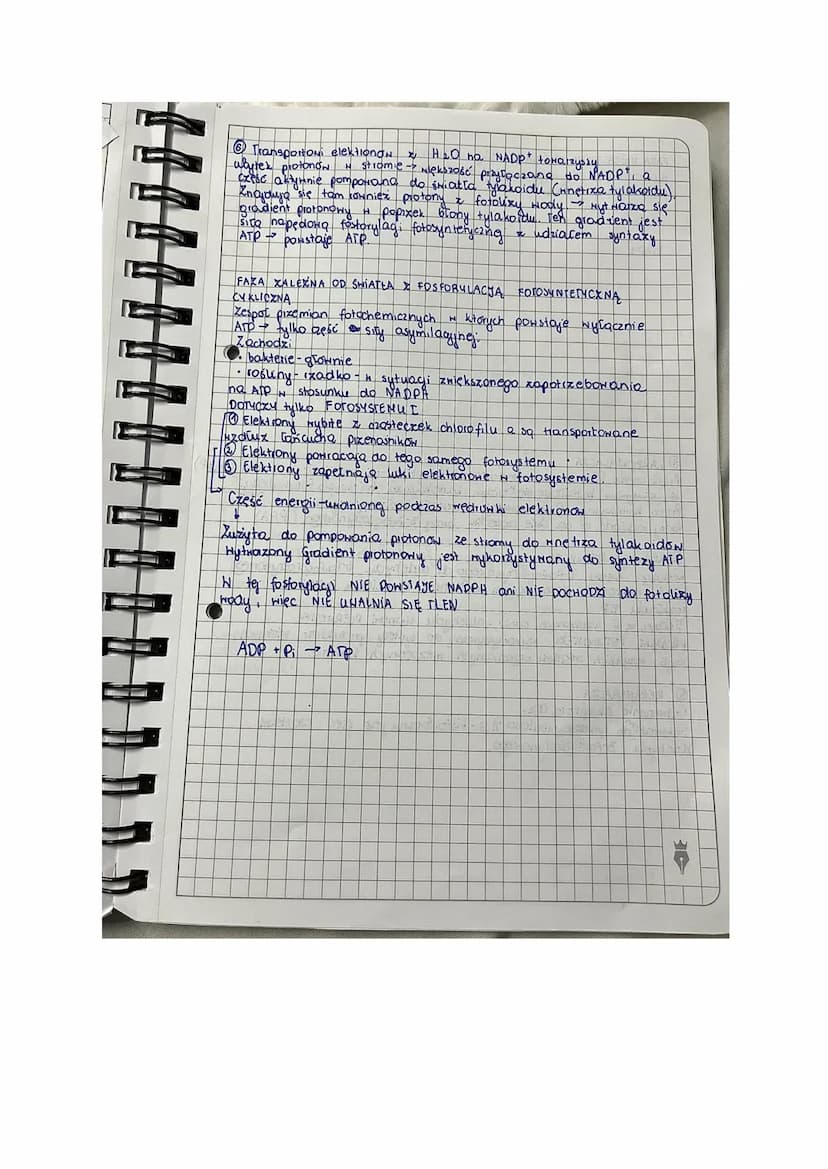 ⑥ Transportowi elektronów z H₂O na NADP⁺ towarzyszy
ubytek protonów w stromie → większość przyłączana do NADP⁺, a
część aktywnie pompowana do światła tylakoidu (wnętrza tylakoidu).
Znajdują się tam również protony z fotolizy wody → wytwarza się
gradient protonowy w poprzek błony tylakoidu. Ten gradient jest
siłą napędową fosforylacji fotosyntetycznej z udziałem syntazy
ATP → powstaje ATP.
FAZA ZALEŻNA OD ŚWIATŁA Z FOSFORYLACJĄ FOTOSYNTETYCZNĄ
CYKLICZNĄ
Zespół przemian fotochemicznych w których powstaje wyłącznie
ATP → tylko część siły asymilacyjnej.
Zachodzi
• bakterie - głównie
• rośliny - rzadko - w sytuacji zwiększonego zapotrzebowania
na ATP w stosunku do NADPH
DOTYCZY tylko FOTOSYSTEMU I
① Elektrony wybite z cząsteczek chlorofilu a są transportowane
wzdłuż łańcucha przenośników
② Elektrony powracają do tego samego fotosystemu
③ Elektrony zapełniają luki elektronowe w fotosystemie.
Część energii - uwalnianą podczas wędrówki elektronów
Zużyta do pompowania protonów ze stromy do wnętrza tylakoidów
Wytwarzony Gradient protonowy jest wykorzystywany do syntezy ATP
W tej fosforylacji NIE POWSTAJE NADPH ani NIE DOCHODZI do fotolizy
wody, więc NIE UWALNIA SIĘ TLEN
ADP + Pi → ATP